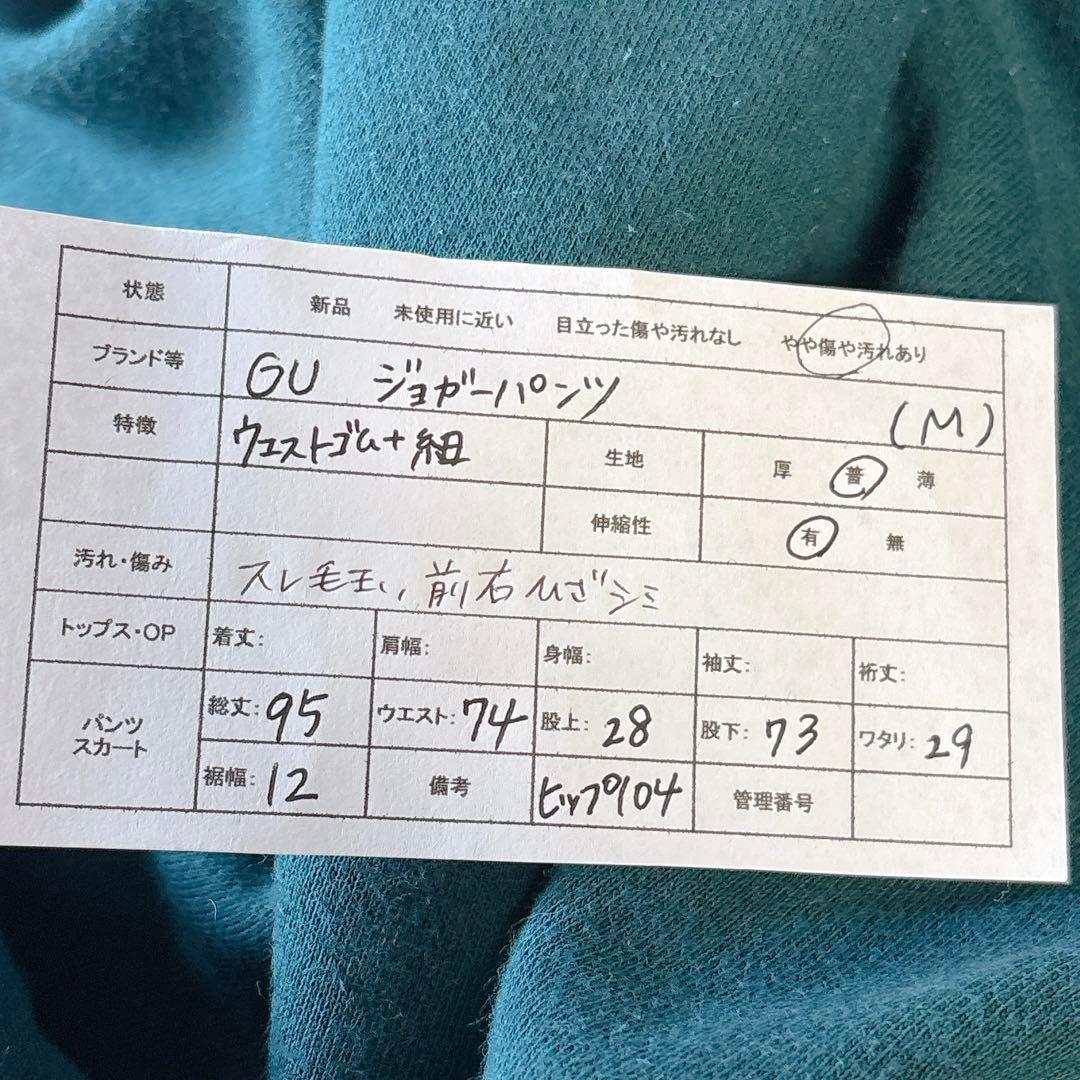 状態 新品 未使用に近い 目立った傷や汚れなし やや傷や汚れあり
ブランド等 GU ジョガーパンツ (M)
特徴 ウエストゴム+紐 生地 厚 普 薄
伸縮性 有 無
汚れ・傷み スレ毛玉、前右ひざシミ
トップス・OP 着丈: 肩幅: 身幅: 袖丈: 裄丈:
パンツ スカート 総丈:95 ウエスト:74 股上:28 股下:73 ワタリ:29
裾幅:12 備考 ヒップ104 管理番号